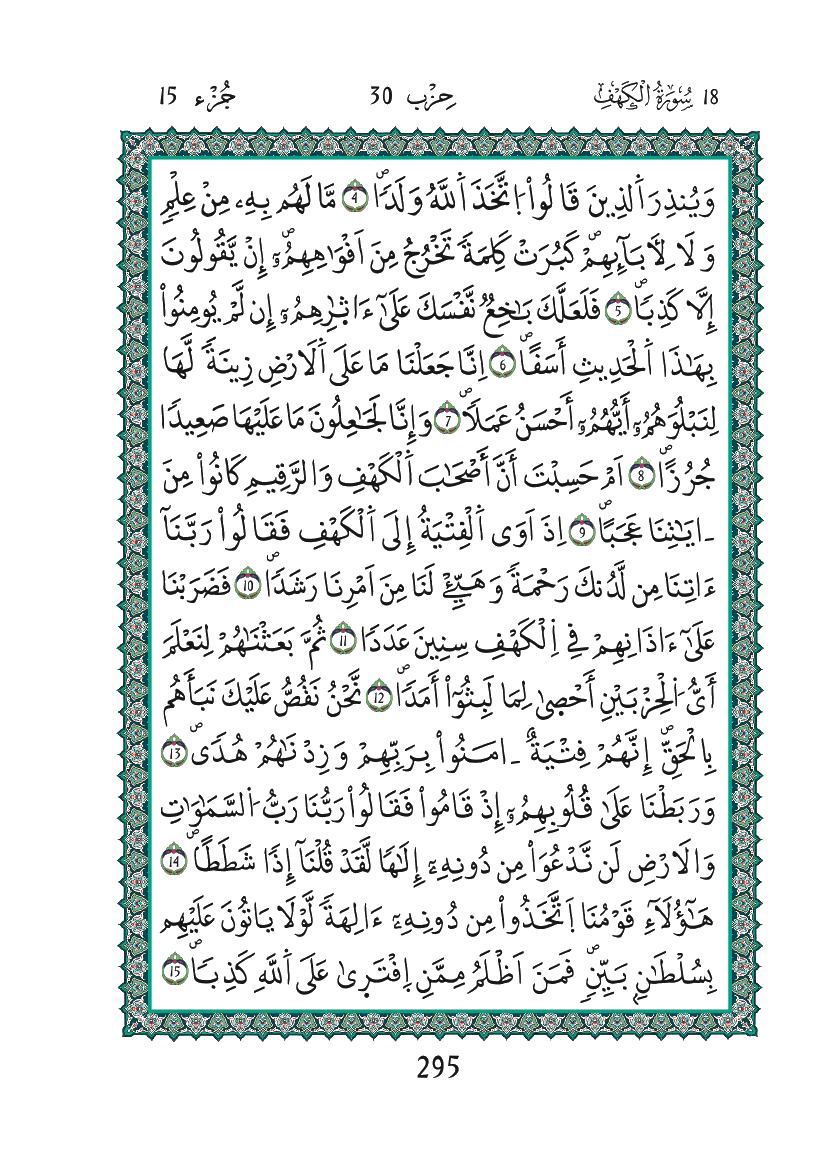 18 سُورَةُ الْكَهْفِ حِزْب 30 جُزْء 15
وَيُنذِرَ اَلذِينَ قَالُواْ اُ۪تَّخَذَ اَ۬للَّهُ وَلَداٗۖ 4 مَّا لَهُم بِهِۦ مِنْ عِلْمٖ
وَلَا لِأَبَآئِهِمْۖ كَبُرَتْ كَلِمَةٗ تَخْرُجُ مِنَ اَفْوَٰهِهِمُۥٓۖ إِنْ يَّقُولُونَ
إِلَّا كَذِباٗۖ 5 فَلَعَلَّكَ بَٰخِعٞ نَّفْسَكَ عَلَىٰٓ ءَاثٰ۪رِهِمُۥٓ إِن لَّمْ يُومِنُواْ
بِهَٰذَا اَ۬لْحَدِيثِ أَسَفاًۖ 6 اِنَّا جَعَلْنَا مَا عَلَى اَ۬لَارْضِ زِينَةٗ لَّهَا
لِنَبْلُوَهُمُۥٓ أَيُّهُمُۥٓ أَحْسَنُ عَمَلاٗۖ 7 وَإِنَّا لَجَٰعِلُونَ مَا عَلَيْهَا صَعِيداٗ
جُرُزاًۖ 8 اَمْ حَسِبْتَ أَنَّ أَصْحَٰبَ اَ۬لْكَهْفِ وَالرَّقِيمِ كَانُواْ مِنَ
ـ۬ايَٰتِنَا عَجَباًۖ 9 اِذَ اَوَى اَ۬لْفِتْيَةُ إِلَى اَ۬لْكَهْفِ فَقَالُواْ رَبَّنَآ
ءَاتِنَا مِن لَّدُنكَ رَحْمَةٗ وَهَيِّۓْ لَنَا مِنَ اَمْرِنَا رَشَداٗۖ 10 فَضَرَبْنَا
عَلَىٰٓ ءَاذَانِهِمْ فِے اِ۬لْكَهْفِ سِنِينَ عَدَداٗ 11 ثُمَّ بَعَثْنَٰهُمْ لِنَعْلَمَ
أَيُّ اُ۬لْحِزْبَيْنِ أَحْص۪ىٰ لِمَا لَبِثُوٓاْ أَمَداٗۖ 12 نَّحْنُ نَقُصُّ عَلَيْكَ نَبَأَهُم
بِالْحَقِّۖ إِنَّهُمْ فِتْيَةٌ ـ۬امَنُواْ بِرَبِّهِمْ وَزِدْنَٰهُمْ هُدىٗۖ 13
وَرَبَطْنَا عَلَىٰ قُلُوبِهِمُۥٓ إِذْ قَامُواْ فَقَالُواْ رَبُّنَا رَبُّ اُ۬لسَّمَٰوَٰتِ
وَالَارْضِ لَن نَّدْعُوَاْ مِن دُونِهِۦٓ إِلَٰهاٗ لَّقَدْ قُلْنَآ إِذاٗ شَطَطاًۖ 14
هَٰٓؤُلَآءِ قَوْمُنَا اَ۪تَّخَذُواْ مِن دُونِهِۦٓ ءَالِهَةٗ لَّوْلَا يَاتُونَ عَلَيْهِم
بِسُلْطَٰنِۢ بَيِّنٖۖ فَمَنَ اَظْلَمُ مِمَّنِ اِ۪فْتَر۪ىٰ عَلَى اَ۬للَّهِ كَذِباٗۖ 15
295